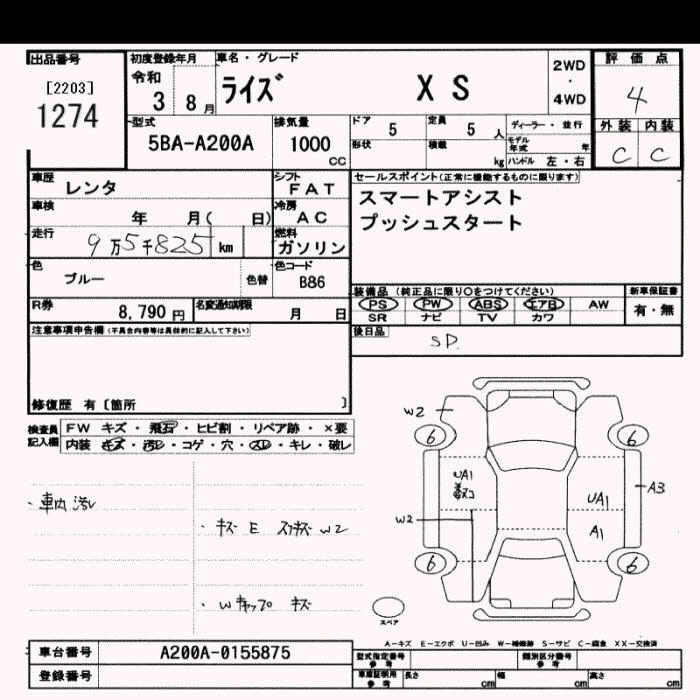 出品番号
[2203]
1274
初度登録年月
令和
3 8月
車名・グレード
ライズ XS
2WD
・
4WD
評価点
4
外装 内装
C C
型式
5BA-A200A
排気量
1000
cc
ドア 5
定員 5 人
形状
積載 kg
ディーラー・並行
モデル年式 年
ハンドル 左・右
車歴 レンタ
車検 年 月( 日)
走行 9万5千825 km
色 ブルー
色替
R券 8,790円
名変通知期限 月 日
シフト
FAT
冷房
AC
燃料
ガソリン
色コード
B86
セールスポイント(正常に機能するものに限ります)
スマートアシスト
プッシュスタート
装備品(純正品に限り○をつけてください)
PS PW ABS エアB AW
SR ナビ TV カワ
新車保証書
有・無
後日品
SP.
注意事項申告欄(不具合内容等は具体的に記入して下さい)
修復歴 有〔箇所 〕
検査員
記入欄
FW キズ・飛石・ヒビ割・リペア跡・×要
内装 キズ・汚レ・コゲ・穴・スレ・キレ・破レ
・車内 汚レ
・キズ E スリキズ W2
・Wキャップ キズ
W2
6
6
UA1
W2
UA1
A1
A3
6
6
スペア
A-キズ E-エクボ U-凹み W-補修跡 S-サビ C-腐食 XX-交換済
車台番号 A200A-0155875
登録番号
型式指定番号
参考
類別区分番号
参考
車庫証明用
参考
長さ cm
幅 cm
高さ cm